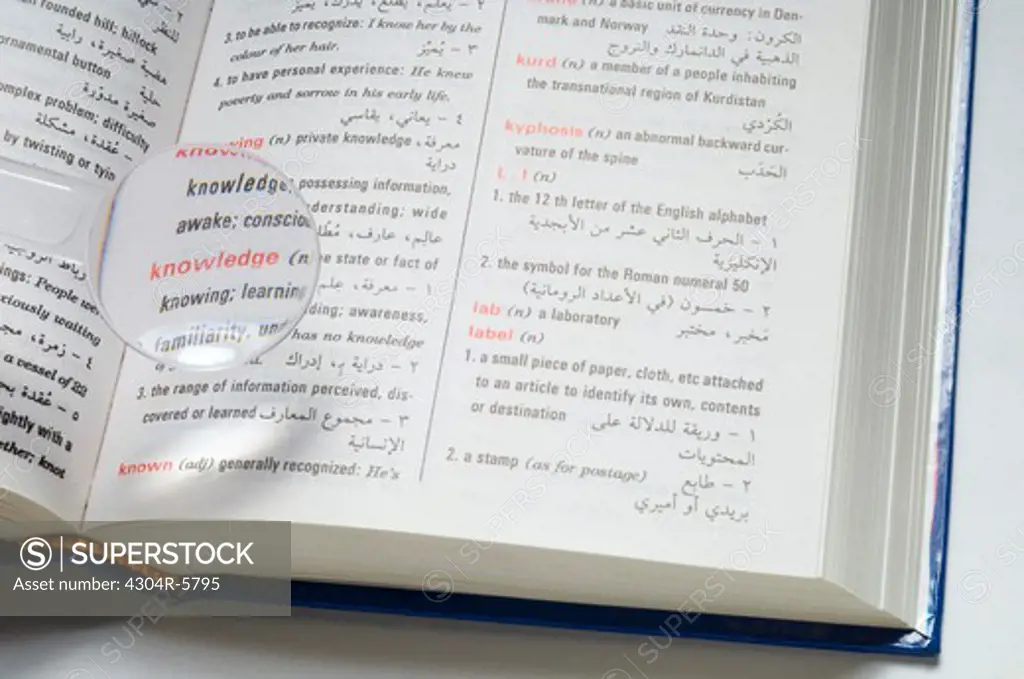 n rounded hill; hillock
هضبة صغيرة، رابية
ornamental button
حلية
صغيرة مدوّرة
omplex problem; difficulty
عُقدة، مشكلة
by twisting or tyin
ings: People we
ciously waiting
٤ – زمرة،
a vessel of
٥ – عُقدة
ightly with a
ether; knot
٢ – يعلم،
3. to be able to recognize: I know her by the
colour of her hair.
٣ – يُميّز
4. to have personal experience: He knew
poverty and sorrow in his early life.
٤ – يعاني، يقاسي
knowing (n) private knowledge
معرفة،
دراية
knowledge; possessing information,
awake; conscio understanding; wide
عالِم، عارف،
knowledge (n) the state or fact of
knowing; learning
١ – معرفة، علم
familiarity, und ding; awareness,
has no knowledge
٢ – دراية بـ، إدراك
3. the range of information perceived, dis-
covered or learned ٣ – مجموع المعارف
الإنسانية
known (adj) generally recognized: He's
(n) a basic unit of currency in Den-
mark and Norway الكرون: وحدة النقد
الذهبية في الدانمارك والنروج
kurd (n) a member of a people inhabiting
the transnational region of Kurdistan
الكُرْدي
kyphosis (n) an abnormal backward cur-
vature of the spine الحَدَب
L . l (n)
1. the 12 th letter of the English alphabet
١ – الحرف الثاني عشر من الأبجدية
الإنكليزية
2. the symbol for the Roman numeral 50
٢ – خمسون (في الأعداد الرومانية)
lab (n) a laboratory مَخبر، مختبر
label (n)
1. a small piece of paper, cloth, etc attached
to an article to identify its own, contents
or destination ١ – وريقة للدلالة على
المحتويات
2. a stamp (as for postage) ٢ – طابع
بريدي أو أميري
SUPERSTOCK
Asset number: 4304R-5795